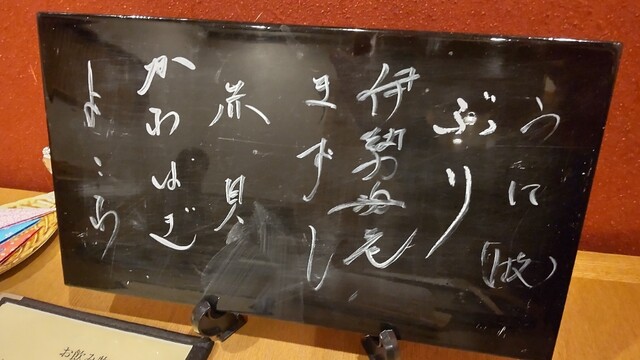 うに(1枚)
ぶり
伊勢海老
まずし
赤貝
かわはぎ
よこわ
お飲み